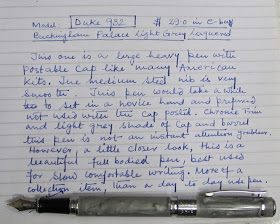 Model: Duke 932 $ 29.0 in e-bay
Buckingham Palace Light Grey Laquered
This one is a large heavy pen with
Postable Cap like many American
Kits. The medium steel nib is very
smooth. This pen would take a while
to set in a novice hand and prepared
not used with the cap posted. Chrome Trim
and light grey shade of Cap and barrel
this pen is not an instant attention grabber.
However, a little closer look, this is a
beautiful full bodied pen, best used
for slow comfortable writing. More of a
collection item, than a day to day use pen.